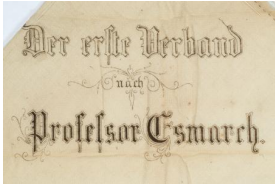 Der erſte Verband
nach
Profeſsor Esmarch.